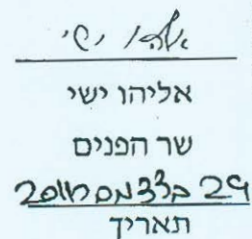 אליהו ישי
אליהו ישי
שר הפנים
29 בדצמבר 2009
תאריך